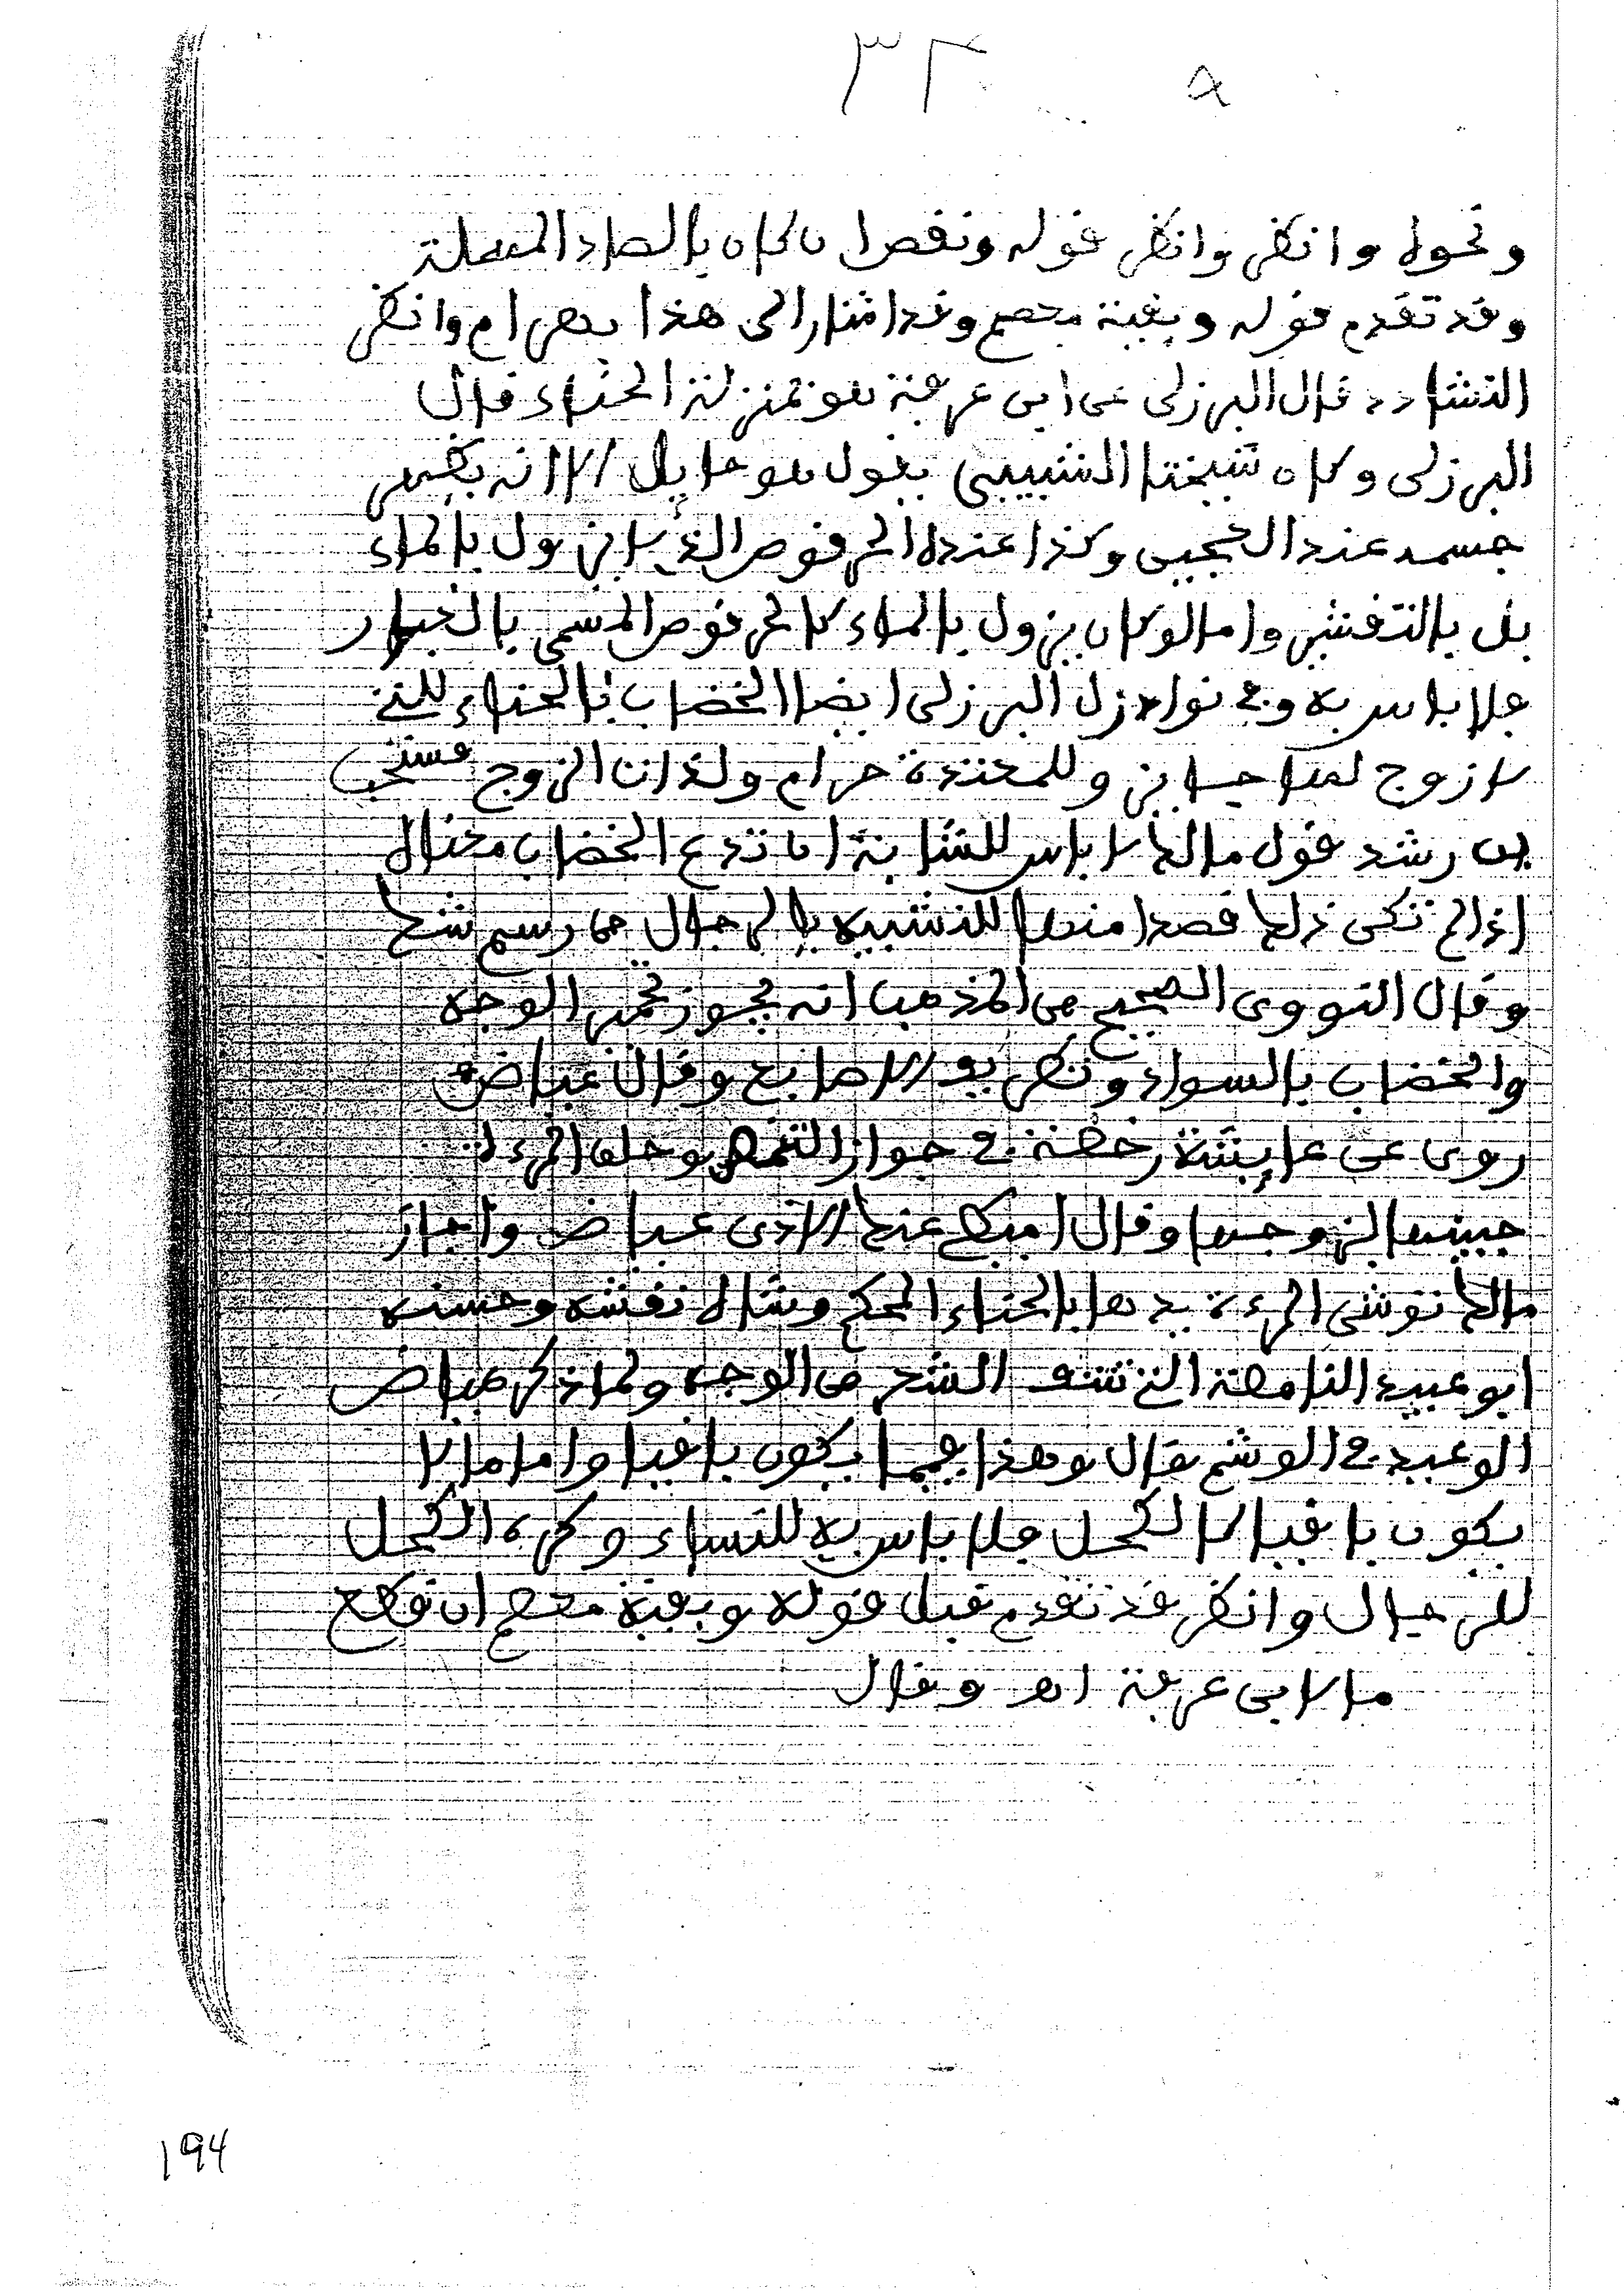 ٣٢ ۵
ونحوه وانظر وانظر قوله ونفص ان كان بالصاد المهملة
وقد تقدم قوله وبقية معصم وقد اشار الى هذا بهرام وانظر
النشادر قال البرزلي عن ابن عرفة هو بمنزلة الحناء قال
البرزلي وكان شيخنا الشبيبي يقول هو حايل الا انه يظهر
جسمه عند العجين وكذا عنده الحرقوص الذي لا يزول بالماء
بل بالتقشير واما لو كان يزول بالماء كالحرقوص المسمى بالغبار
فلا باس به وفي نوازل البرزلي ايضا الخضاب بالحناء للتي
لا زوج لها جايز وللمعتدة حرام ولذات الزوج مستحب
ابن رشد قول مالك لا باس للشابة ان تدع الخضاب
اذا لم تكن ذلك قصدا منها للتشبيه بالرجال من رسم شك
وقال النووي الصحيح من المذهب انه يجوز تحمير الوجه
والخضاب بالسواد وتطريف الاصابع وقال عياض
روي عن عايشة رخصة في جواز النمص وحلق المرءة
جبينها لزوجها وقال اميطي عنك الاذى عياض واجاز
مالك توشي المرءة يدها بالحناء نقشه وحسنه
ابو عبيد النامصة التي تنتف الشعر من الوجه ولما ذكر عياض
الوعيد في الوشم قال وهذا فيما يكون باقيا واما ما لا
يكون باقيا كالكحل فلا باس به للنساء وكره الكحل
للرجال وانظر قد تقدم قبل قوله وبقية معصم ان قطع
ما لابن عرفة اهـ وقال
194